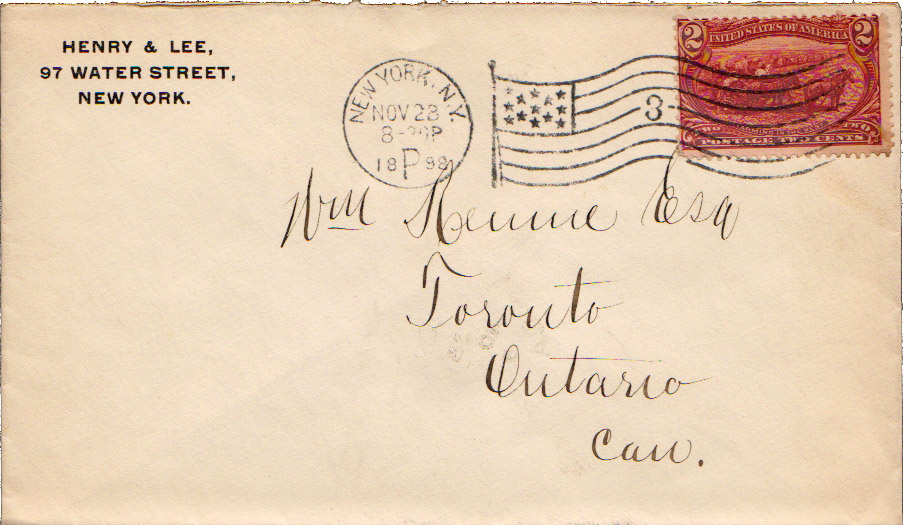 HENRY & LEE,
97 WATER STREET,
NEW YORK.
NEW YORK. N.Y.
NOV 28
8-30P
1898
P
3
2 UNITED STATES OF AMERICA 2
POSTAGE TWO CENTS
Wm Rennie Esq
Toronto
Ontario
Can.